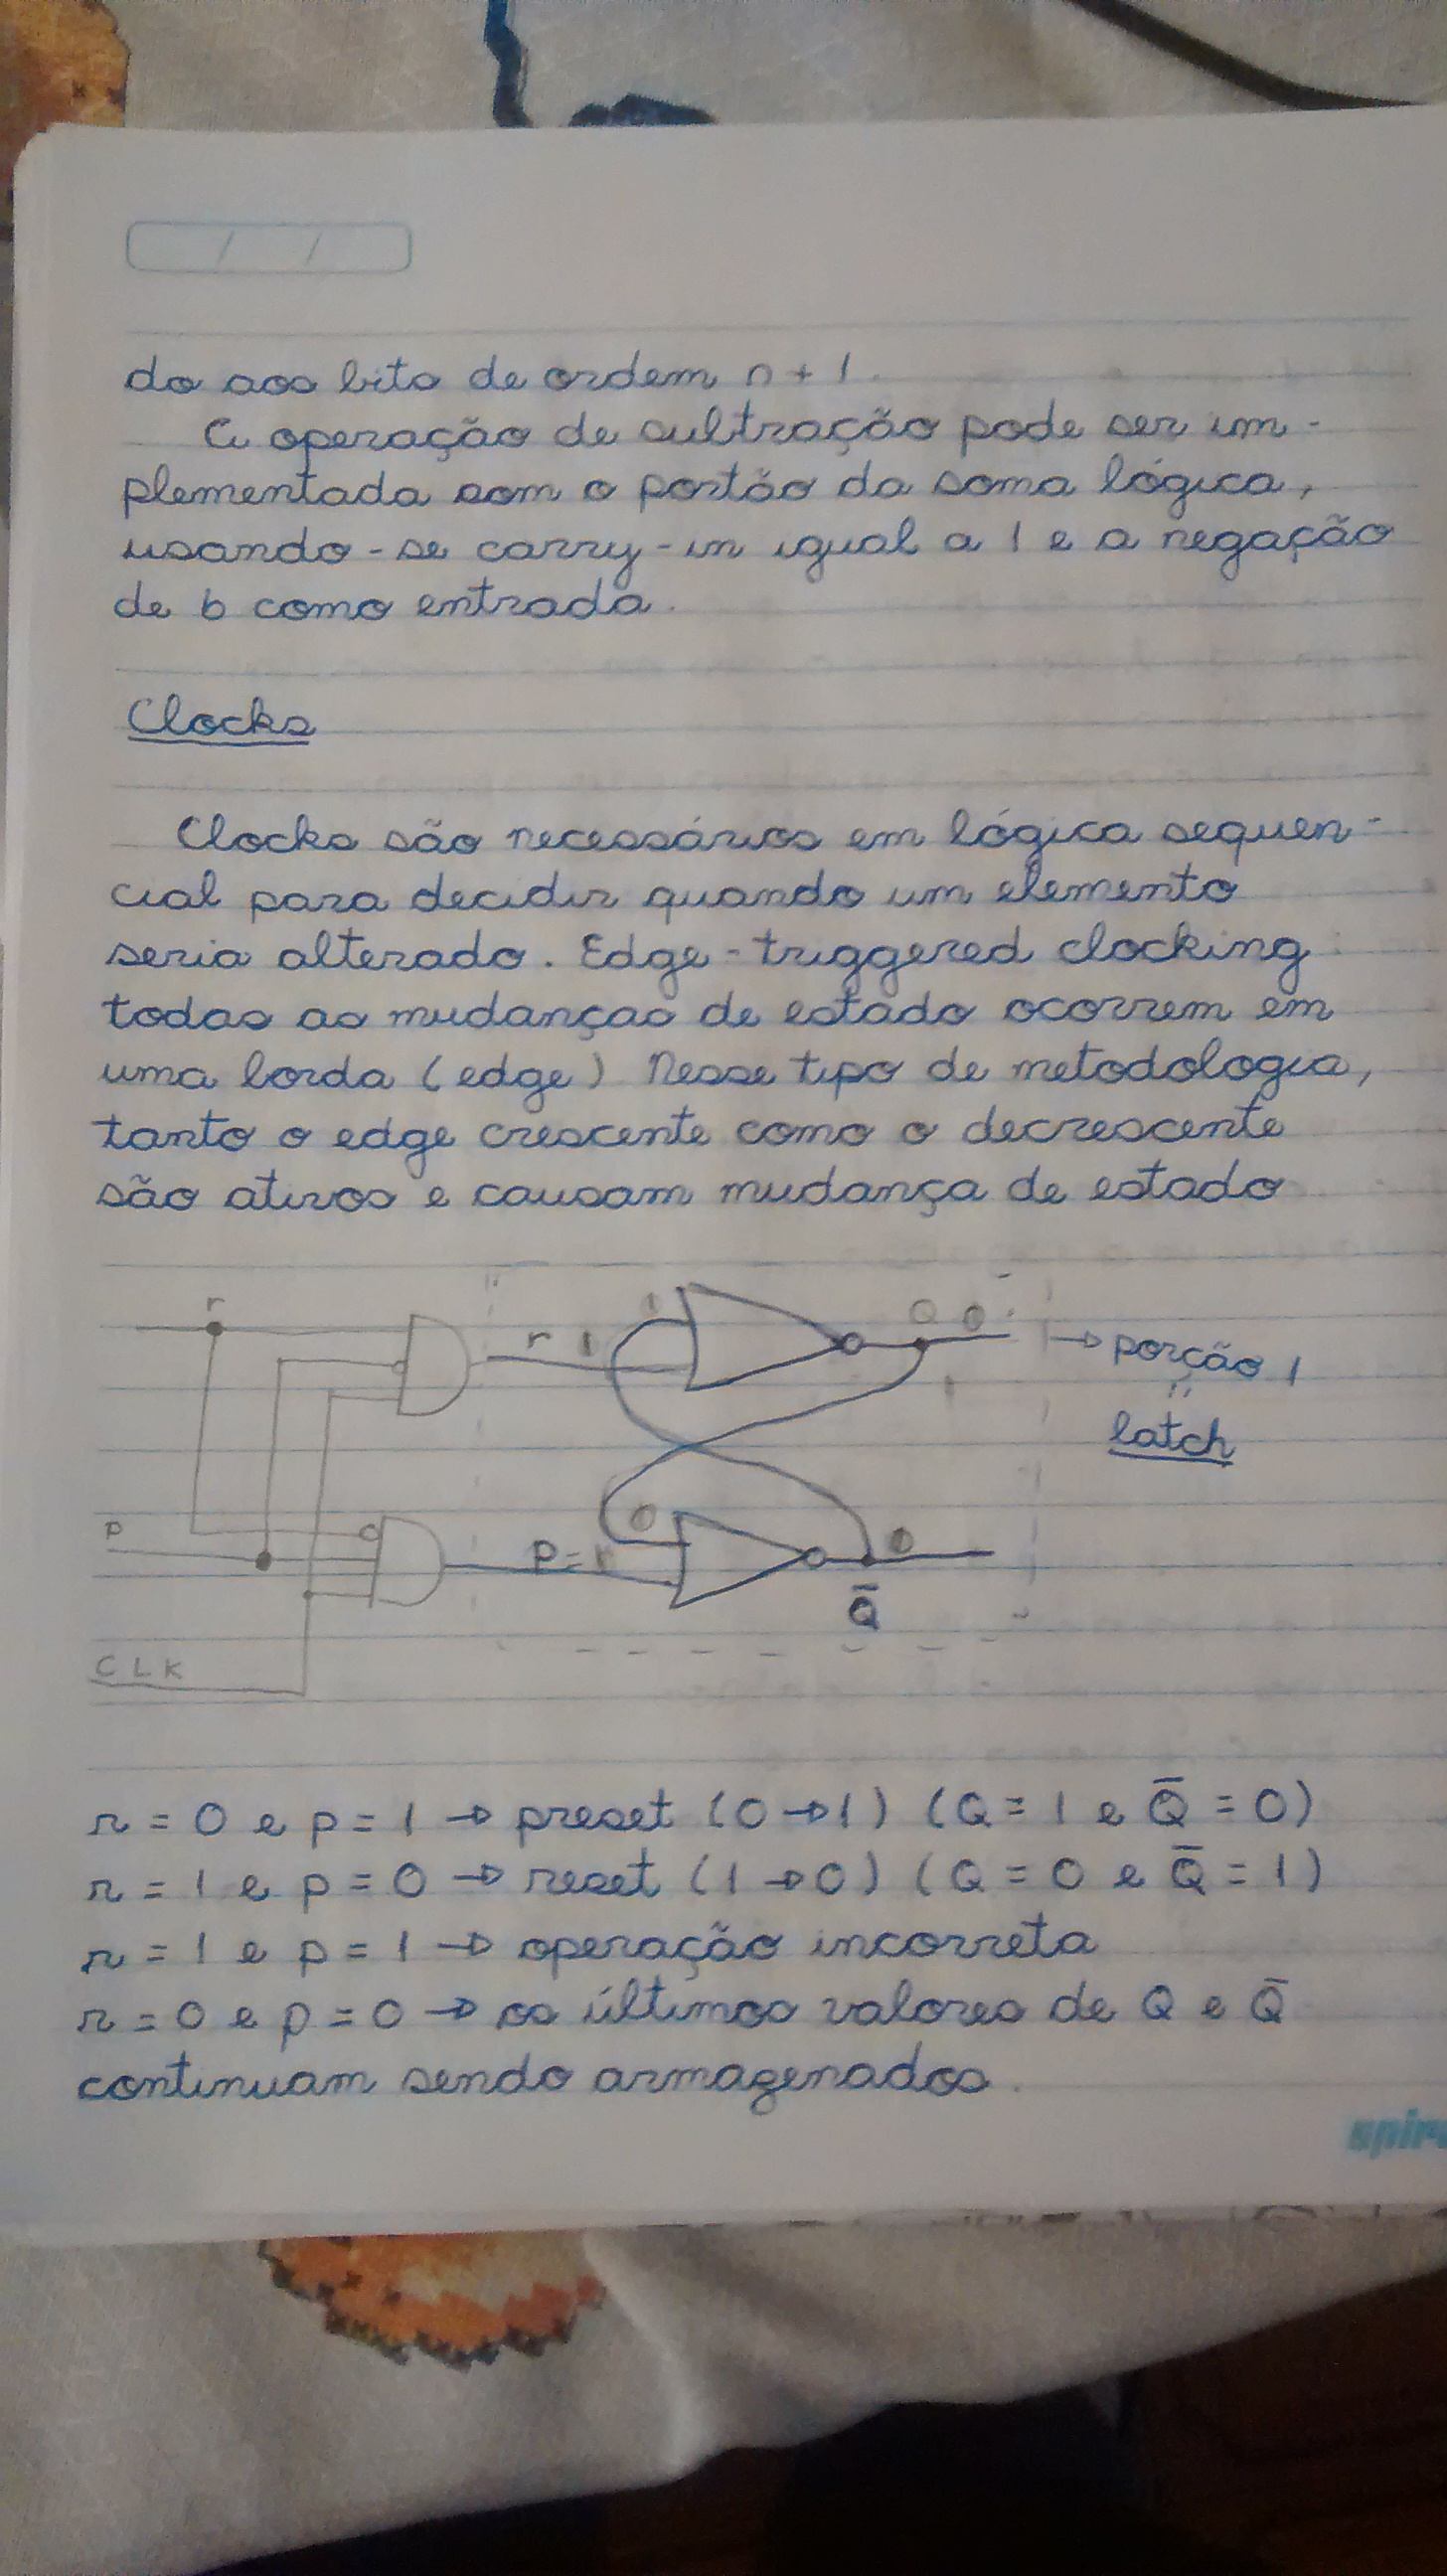 do aos bits de ordem n + 1.
A operação de subtração pode ser im-
plementada com o portão da soma lógica,
usando-se carry-in igual a 1 e a negação
de b como entrada.
Clocks
Clocks são necessários em lógica sequen-
cial para decidir quando um elemento
seria alterado. Edge-triggered clocking:
todas as mudanças de estado ocorrem em
uma borda (edge) Nesse tipo de metodologia,
tanto o edge crescente como o decrescente
são ativos e causam mudança de estado
r
r 1
1
Q 0
→ porção 1
"
latch
P
P = r
0
0
Q̄
CLK
r = 0 e p = 1 → preset (0→1) (Q = 1 e Q̄ = 0)
r = 1 e p = 0 → reset (1→0) (Q = 0 e Q̄ = 1)
r = 1 e p = 1 → operação incorreta
r = 0 e p = 0 → os últimos valores de Q e Q̄
continuam sendo armagenados.